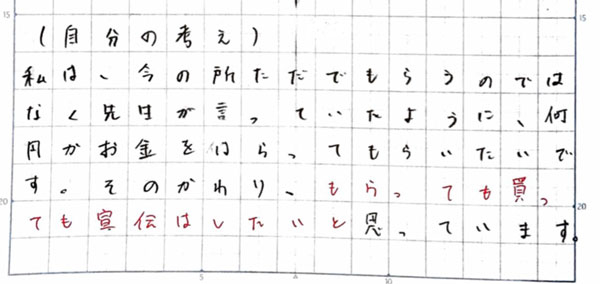 15 15
(自分の考え)
私は、今の所ただでもらうのでは
なく先生が言っていたように、何
円かお金をはらってもらいたいで
す。そのかわり、もらっても買っ
20 20
ても宣伝はしたいと思っています。
5 10